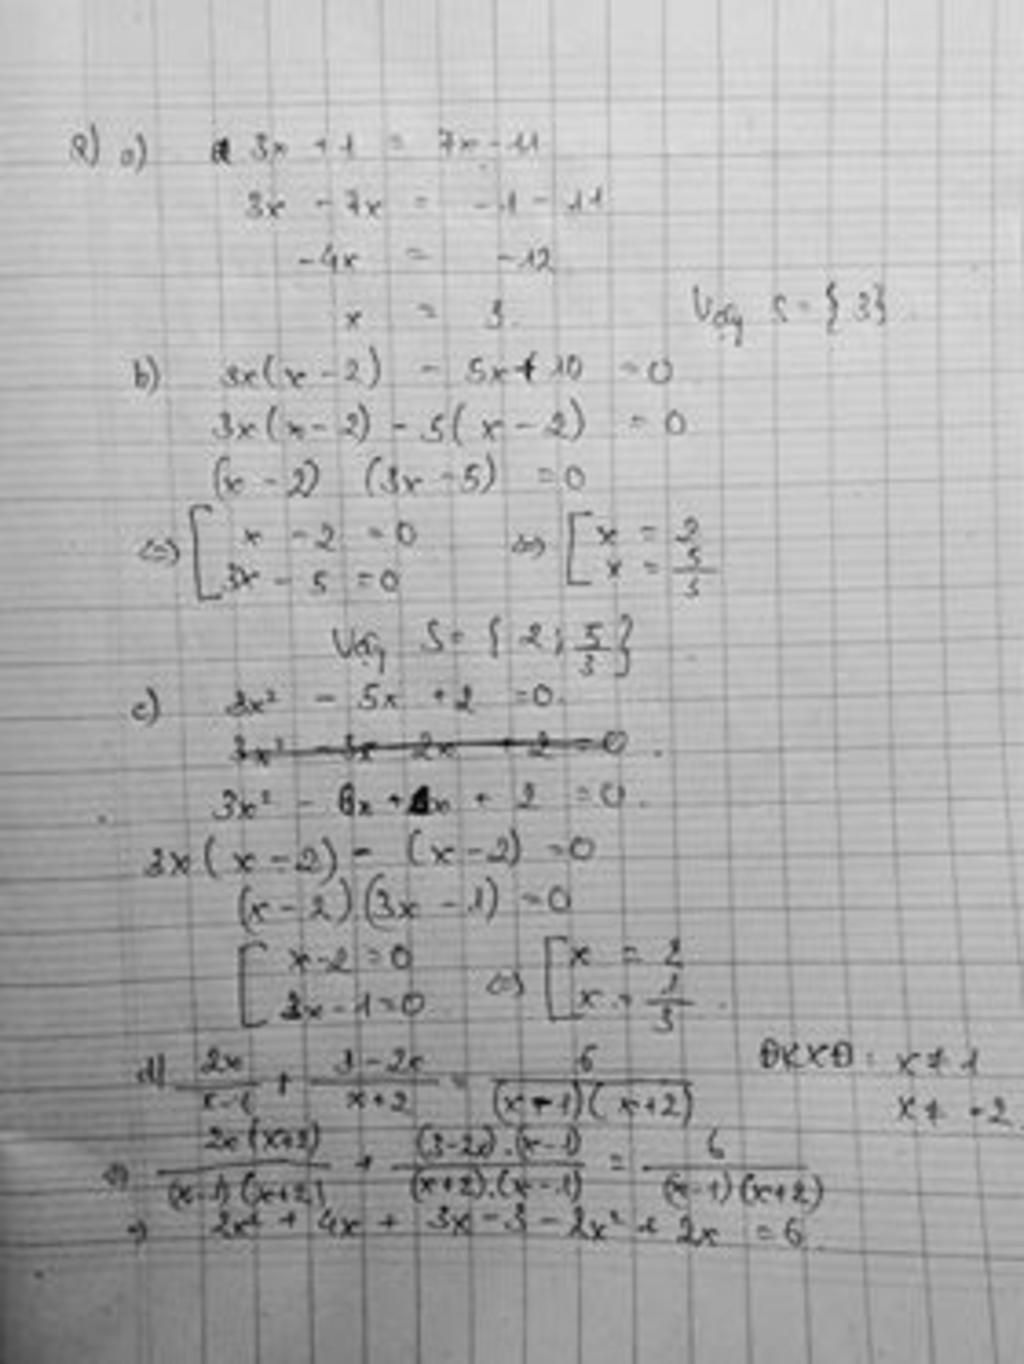 2) a) 3x + 1 = 7x - 11
3x - 7x = -1 - 11
-4x = -12
x = 3. Vậy S = {3}
b) 3x(x - 2) - 5x + 10 = 0
3x(x - 2) - 5(x - 2) = 0
(x - 2) (3x - 5) = 0
<=> [ x - 2 = 0 <=> [ x = 2
3x - 5 = 0 x = 5/3
Vậy S = { 2 ; 5/3 }
c) 3x² - 5x + 2 = 0.
3x² - 3x 2x + 2 = 0.
3x² - 6x + x + 2 = 0.
3x(x - 2) - (x - 2) = 0
(x - 2)(3x - 1) = 0
[ x - 2 = 0 <=> [ x = 2
3x - 1 = 0 x = 1/3.
d) 2x/(x-1) + (3-2x)/(x+2) = 6/((x-1)(x+2)) ĐKXĐ: x ≠ 1
x ≠ -2
<=> 2x(x+2)/((x-1)(x+2)) + (3-2x).(x-1)/((x+2).(x-1)) = 6/((x-1)(x+2))
=> 2x² + 4x + 3x - 3 - 2x² + 2x = 6